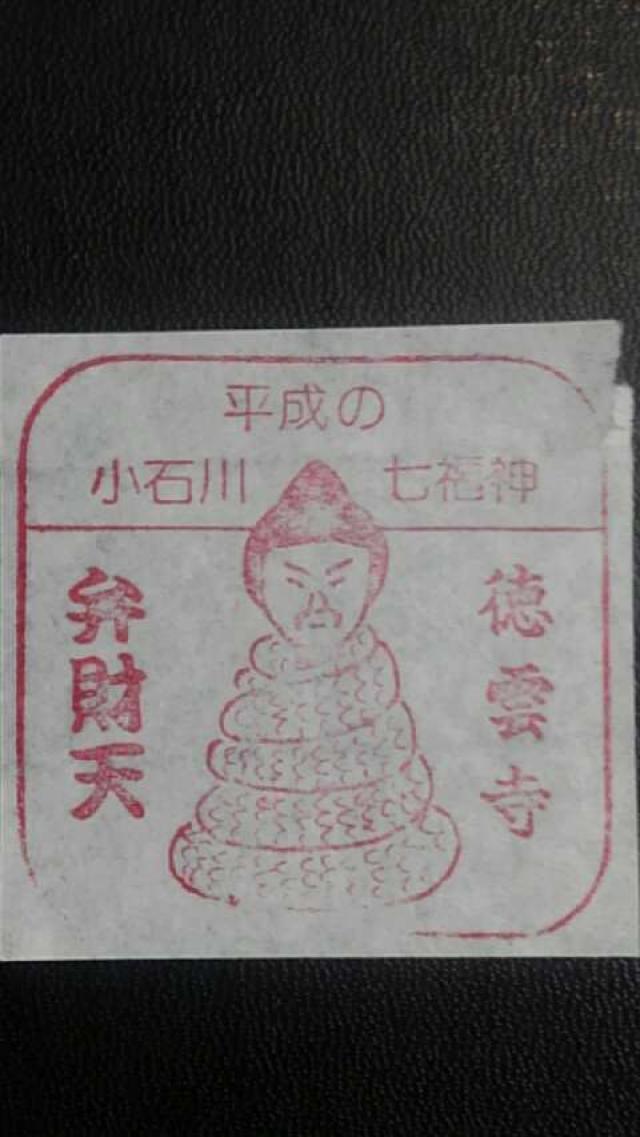 平成の
小石川 七福神
徳雲寺
弁財天